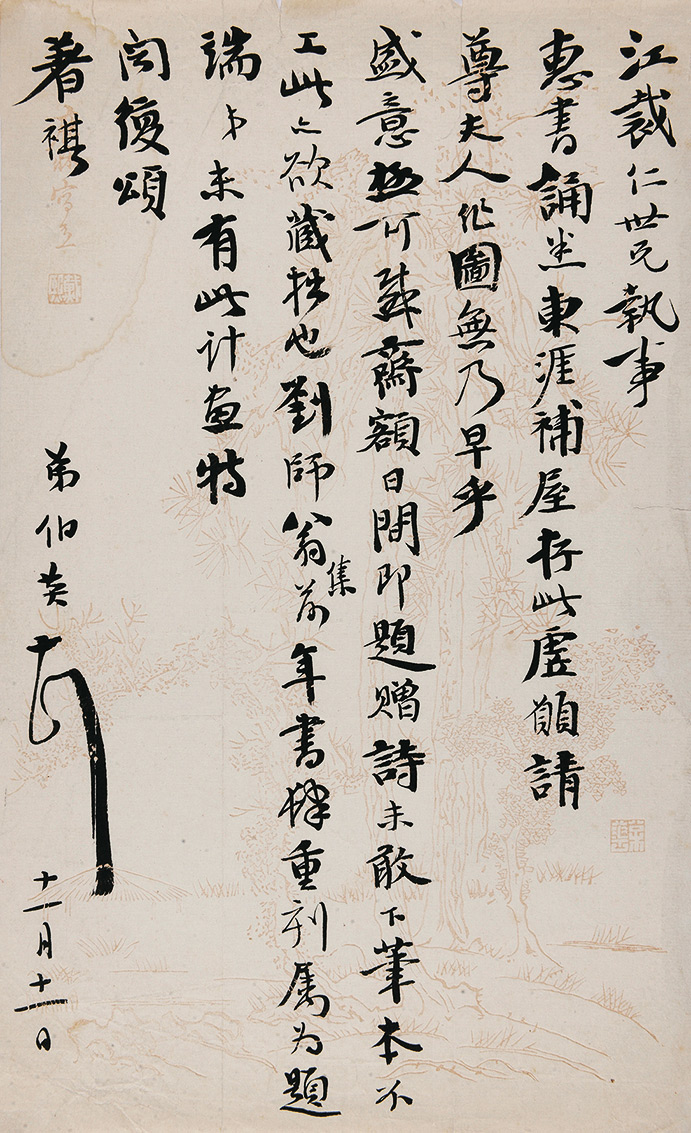 江裁仁世兄執事
惠書誦悉東涯補屋存此虛願請
尊夫人作圖無乃早乎
盛意極可感齋額日間即題贈詩未敢下筆本不
工此亦欲藏拙也劉師翁集前年書肆重刻屬為題
端弟未有此計畫特
聞復頌
著祺
弟伯英
十一月十一日